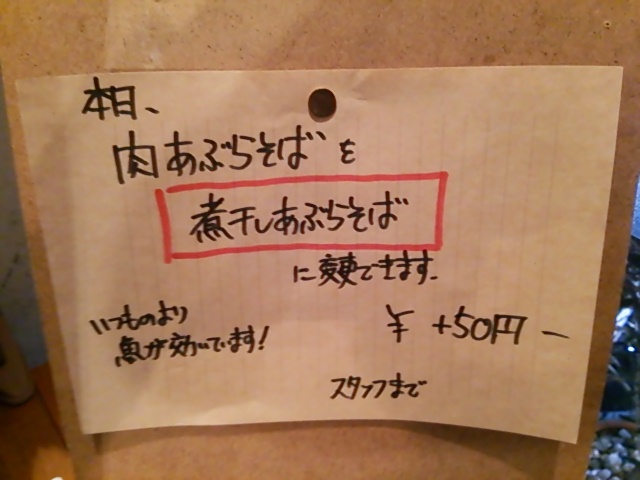 本日、
肉あぶらそばを
煮干しあぶらそば
に変更できます。
いつものより
魚が効いています!
¥ +50円ー
スタッフまで